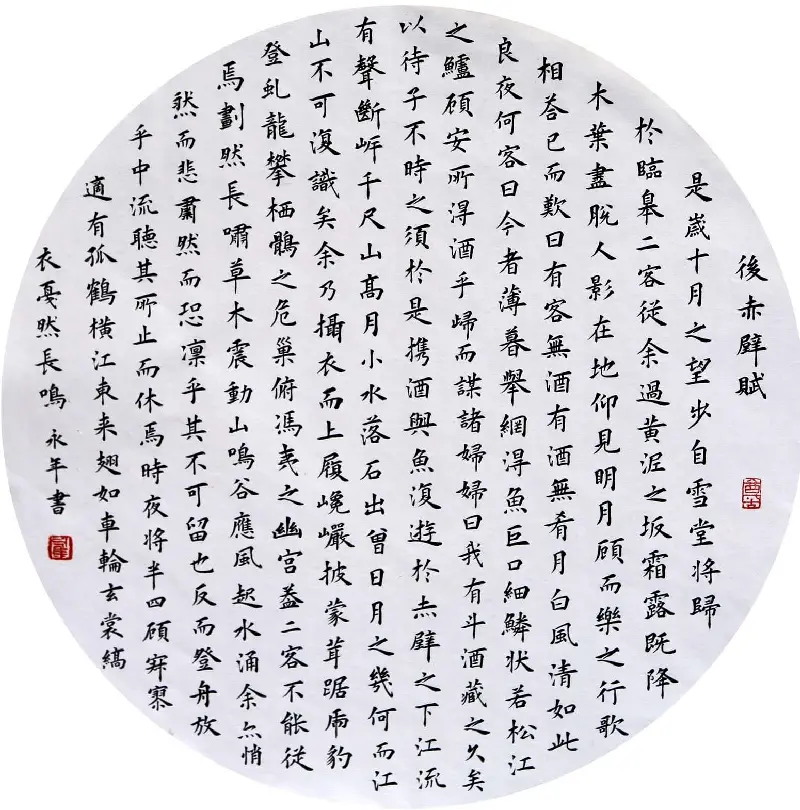 後赤壁賦
是歲十月之望步自雪堂將歸
於臨皋二客從余過黃泥之坂霜露既降
木葉盡脫人影在地仰見明月顧而樂之行歌
相荅已而歎曰有客無酒有酒無肴月白風清如此
良夜何客曰今者薄暮舉網得魚巨口細鱗状若松江
之鱸顧安所得酒乎歸而謀諸婦婦曰我有斗酒藏之久矣
以待子不時之須於是携酒與魚復遊於赤壁之下江流
有聲斷岸千尺山高月小水落石出曾日月之幾何而江
山不可復識矣余乃攝衣而上履巉巖披蒙茸踞虎豹
登虬龍攀栖鶻之危巢俯馮夷之幽宮盖二客不能從
焉劃然長嘯草木震動山鳴谷應風起水涌余亦悄
然而悲肅然而恐凜乎其不可留也反而登舟放
乎中流聽其所止而休焉時夜將半四顧寂寥
適有孤鶴橫江東来翅如車輪玄裳縞
衣戛然長鳴 永年書